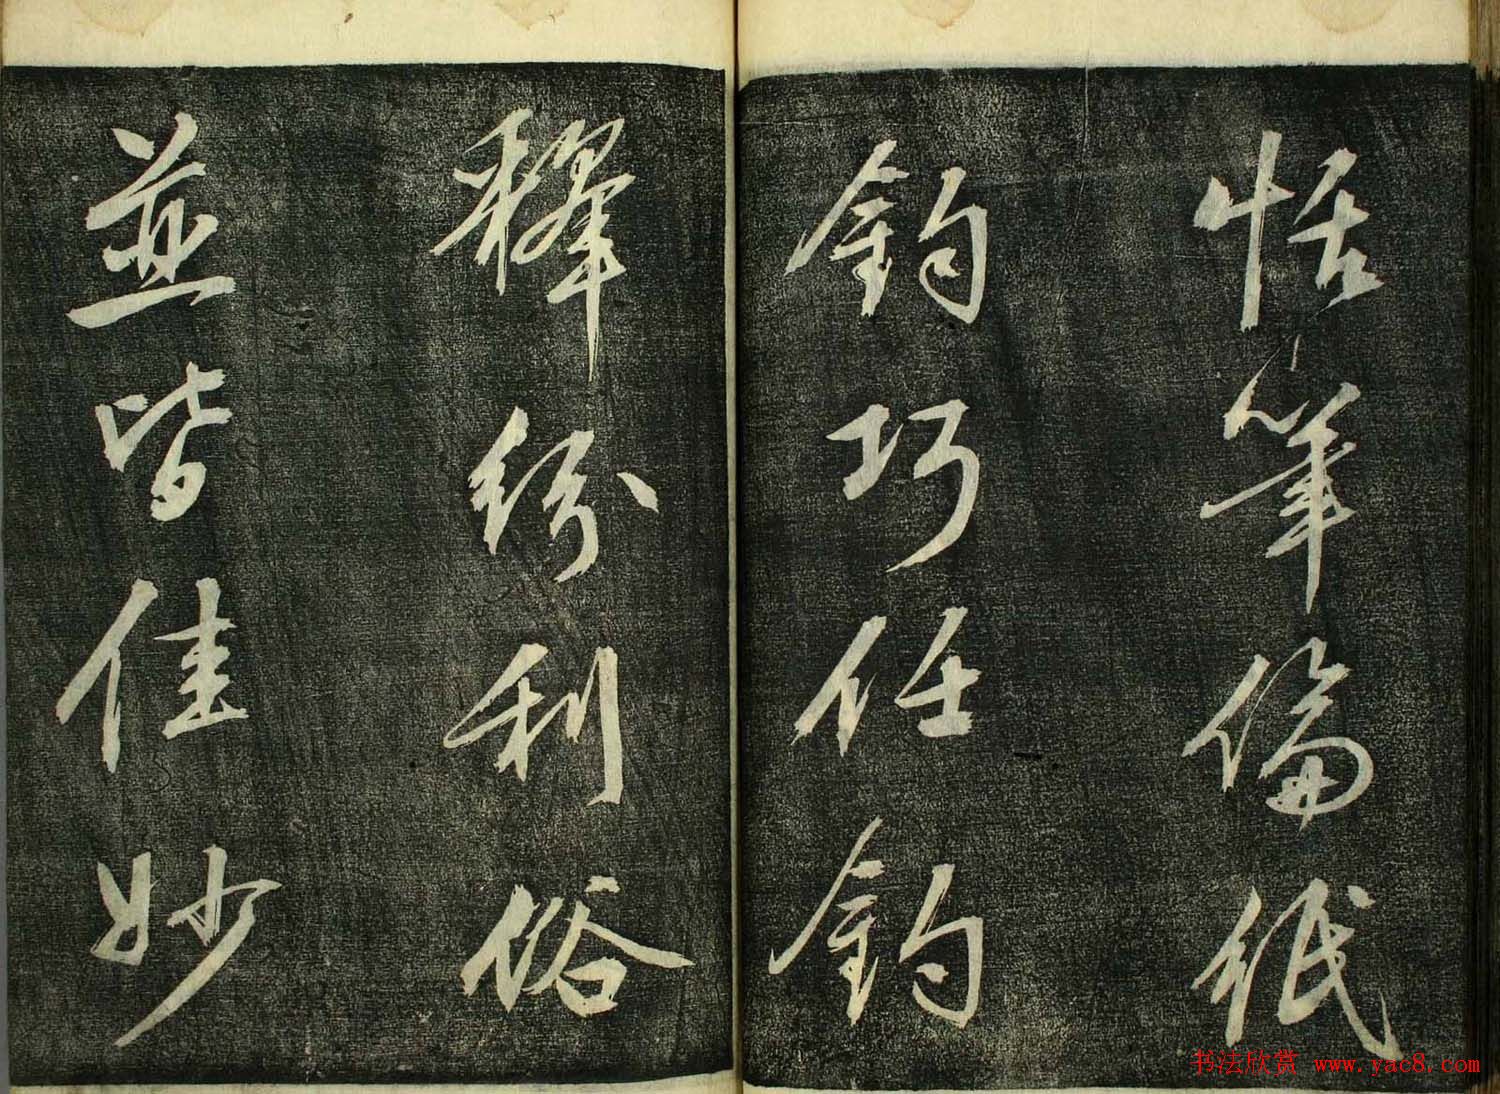 恬筆倫紙
鈞巧任鈞
釋紛利俗
並皆佳妙
书法欣赏 www.yac8.com